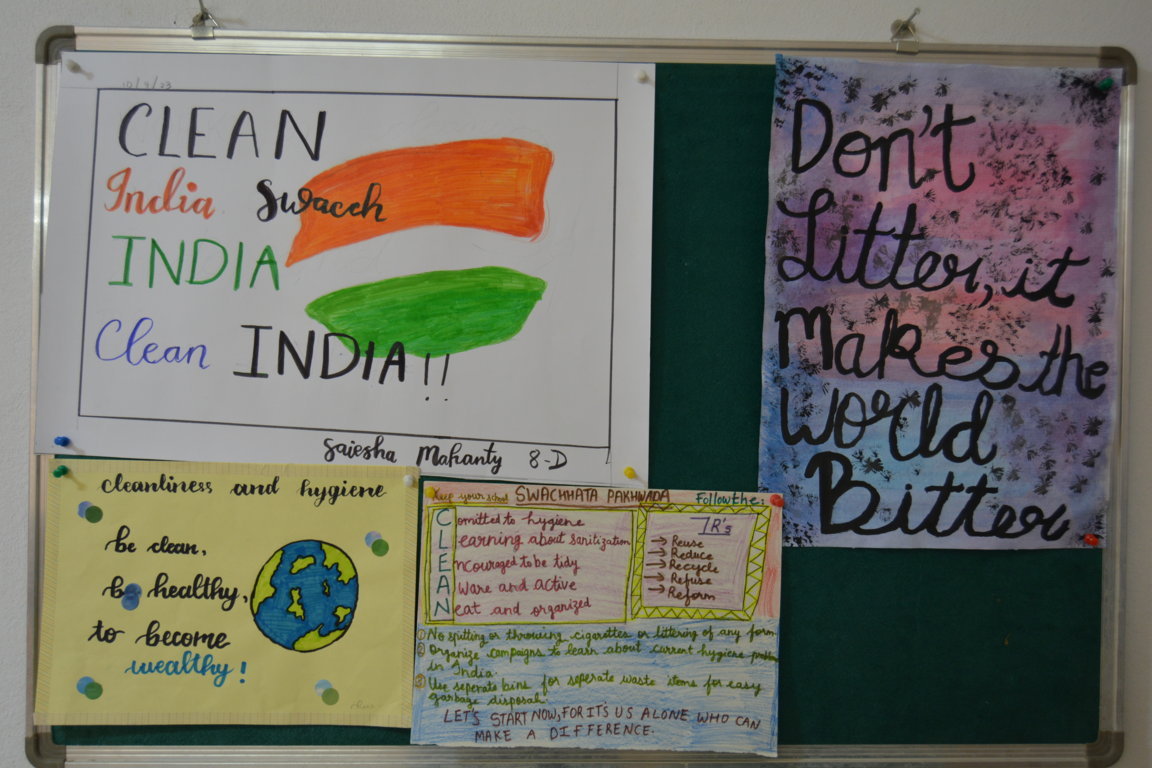 CLEAN
India Swacch
INDIA
Clean INDIA!!
Saiesha Mahanty 8-D
Don't
Litter, it
Makes the
World
Bitter
cleanliness and hygiene
be clean,
be healthy,
to become
wealthy!
Keep your school SWACHHATA PAKHWADA Follow the:
Comitted to hygiene
Learning about sanitization
Encouraged to be tidy
Aware and active
Neat and organized
7R's
→ Reuse
→ Reduce
→ Recycle
→ Refuse
→ Reform
① No spitting or throwing cigarettes or littering of any form
② Organize campaigns to learn about current hygiene
in India.
③ Use seperate bins for seperate waste items for easy
garbage disposal.
LET'S START NOW, FOR IT'S US ALONE WHO CAN
MAKE A DIFFERENCE.